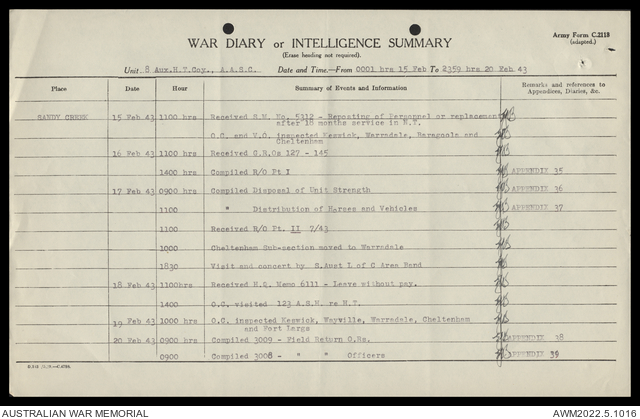 Army Form C.2118
(adapted.)
WAR DIARY or INTELLIGENCE SUMMARY
(Erase heading not required).
Unit 8 Aux.H.T.Coy., A.A.S.C. Date and Time.—From 0001 hrs 15 Feb To 2359 hrs 20 Feb 43
Place Date Hour Summary of Events and Information Remarks and references to Appendices, Diaries, &c.
SANDY CREEK 15 Feb 43 1100 hrs Received S.M. No. 5312 - Reposting of Personnel or replacement
after 18 months service in N.T.
O.C. and V.O. inspected Keswick, Warradale, and
Cheltenham
16 Feb 43 1100 hrs Received G.R.Os 127 - 145
1400 hrs Compiled R/O Pt I APPENDIX 35
17 Feb 43 0900 hrs Compiled Disposal of Unit Strength APPENDIX 36
1100 " Distribution of Horses and Vehicles APPENDIX 37
1100 Received R/O Pt. II 7/43
1000 Cheltenham Sub-section moved to Warradale
1830 Visit and concert by S.Aust L of C Area Band
18 Feb 43 1100hrs Received H.Q. Memo 6111 - Leave without pay.
1400 O.C. visited 123 A.S.H. re H.T.
19 Feb 43 1000 hrs O.C. inspected Keswick, Wayville, Warradale, Cheltenham
and Fort Largs
20 Feb 43 0900 hrs Compiled 3009 - Field Return O.Rs. APPENDIX 38
0900 Compiled 3008 - " " Officers APPENDIX 39
AUSTRALIAN WAR MEMORIAL AWM2022.5.1016